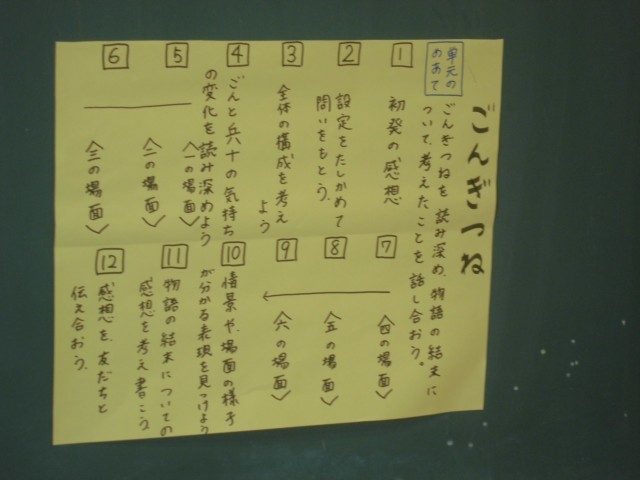 ごんぎつね
単元の
めあて
ごんぎつねを読み深め、物語の結末に
ついて、考えたことを話し合おう。
1
初発の感想
2
設定をたしかめて
問いをもとう。
3
全体の構成を考え
よう
4
ごんと兵十の気持ち
の変化を読み深めよう
〈一の場面〉
5
〈二の場面〉
6
〈三の場面〉
7
〈四の場面〉
8
〈五の場面〉
9
〈六の場面〉
10
情景や、場面の様子
が分かる表現を見つけよう
11
物語の結末についての
感想を考え書こう
12
感想を、友だちと
伝え合おう。